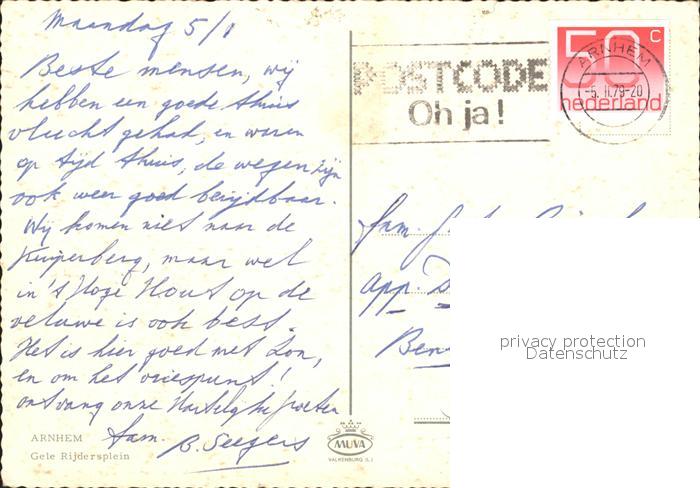 Maandag 5/
Beste mensen, wij
hebben een goede thuis
vlucht gehad, en waren
op tijd thuis, de wegen zijn
ook weer goed berijdbaar.
Wij komen niet naar de
Kuiperberg, maar wel
in 't Hoge Hout op de
veluwe is ook best.
Het is hier goed met Zon,
en om het vriespunt!
ontvang onze Hartelijke groeten
fam. B. Seegers
ARNHEM
Gele Rijdersplein
MUVA
VALKENBURG (L.)
POSTCODE
Oh ja!
50 c
nederland
ARNHEM
-5. II.79-20
fam.
App.
Ben
privacy protection
Datenschutz